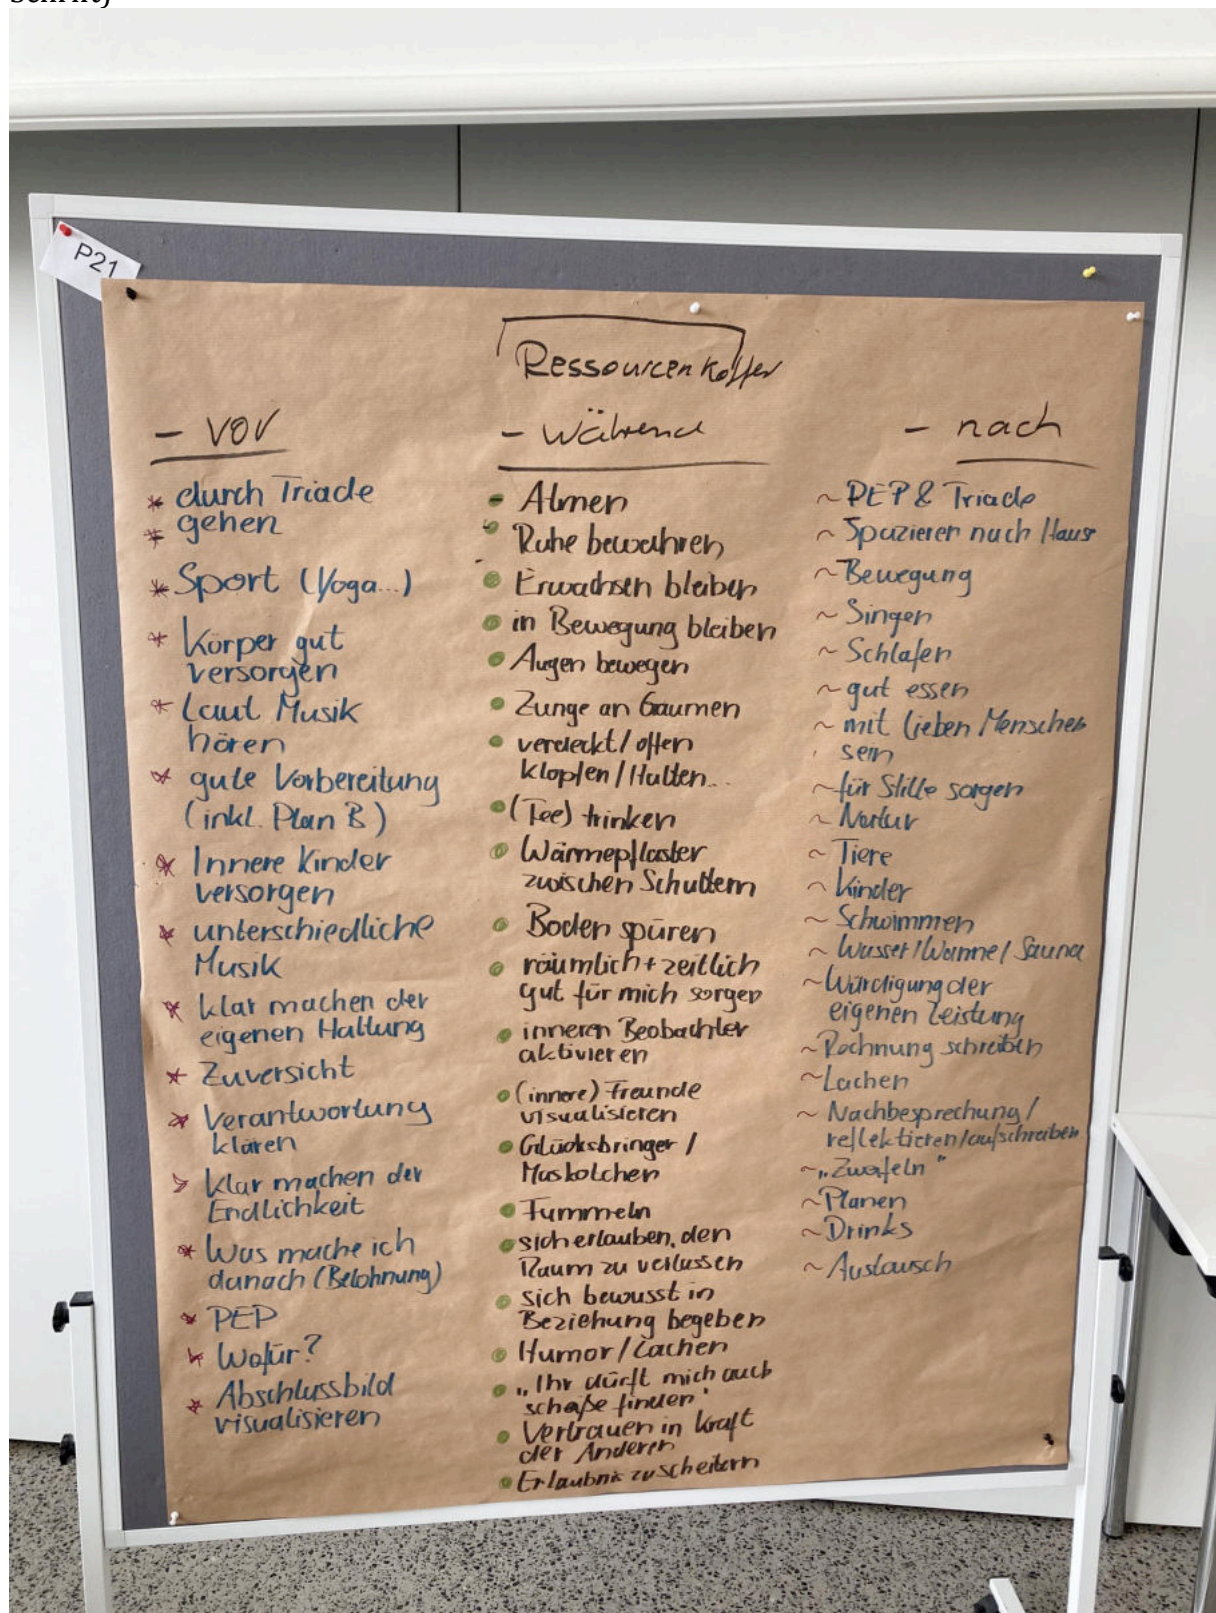 P21
Ressourcenkoffer
- vor
* durch Triade
* gehen
* Sport (Yoga...)
* Körper gut
versorgen
* Laut Musik
hören
* gute Vorbereitung
(inkl. Plan B)
* Innere Kinder
versorgen
* unterschiedliche
Musik
* klar machen der
eigenen Haltung
* Zuversicht
* Verantwortung
klären
* klar machen der
Endlichkeit
* Was mache ich
danach (Belohnung)
* PEP
* Wofür?
* Abschlussbild
visualisieren
- während
• Atmen
• Ruhe bewahren
• Erwachsen bleiben
• in Bewegung bleiben
• Augen bewegen
• Zunge an Gaumen
• verdeckt/offen
klopfen/Halten...
• (Tee) trinken
• Wärmepflaster
zwischen Schultern
• Boden spüren
• räumlich + zeitlich
gut für mich sorgen
• inneren Beobachter
aktivieren
• (innere) Freunde
visualisieren
• Glücksbringer /
Maskotchen
• Fummeln
• sich erlauben, den
Raum zu verlassen
• sich bewusst in
Beziehung begeben
• Humor/Lachen
• „Ihr dürft mich auch
scheiße finden"
• Vertrauen in Kraft
der Anderen
• Erlaubnis zu scheitern
- nach
~ PEP & Triade
~ Spazieren nach Haus
~ Bewegung
~ Singen
~ Schlafen
~ gut essen
~ mit lieben Menschen
sein
~ für Stille sorgen
~ Natur
~ Tiere
~ Kinder
~ Schwimmen
~ Wasser/Wanne/Sauna
~ Würdigung der
eigenen Leistung
~ Rechnung schreiben
~ Lachen
~ Nachbesprechung/
reflektieren/aufschreiben
~ Planen
~ Drinks
~ Austausch